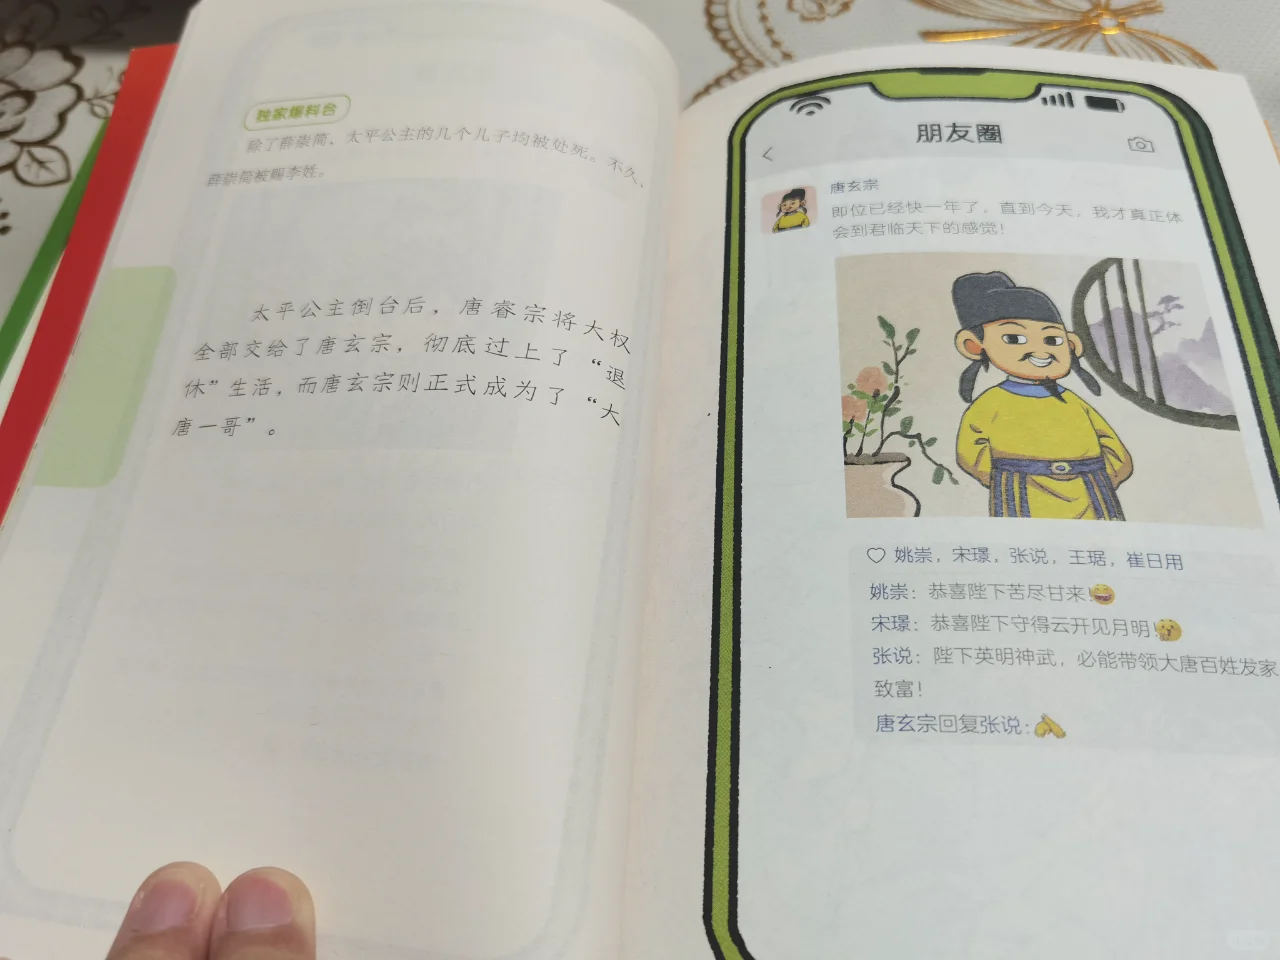 独家爆料台
除了薛崇简，太平公主的几个儿子均被处死。不久，
薛崇简被赐李姓。
太平公主倒台后，唐睿宗将大权
全部交给了唐玄宗，彻底过上了“退
休”生活，而唐玄宗则正式成为了“大
唐一哥”。
朋友圈
唐玄宗
即位已经快一年了，直到今天，我才真正体
会到君临天下的感觉！
姚崇，宋璟，张说，王琚，崔日用
姚崇：恭喜陛下苦尽甘来！😄
宋璟：恭喜陛下守得云开见月明！
张说：陛下英明神武，必能带领大唐百姓发家
致富！
唐玄宗回复张说：